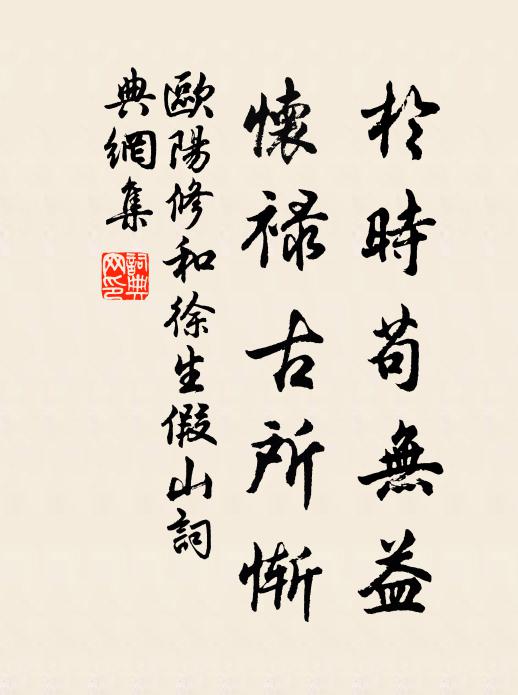 於時苟無益
懷祿古所慚
歐陽修和徐生假山詞
典網集
詞典網印